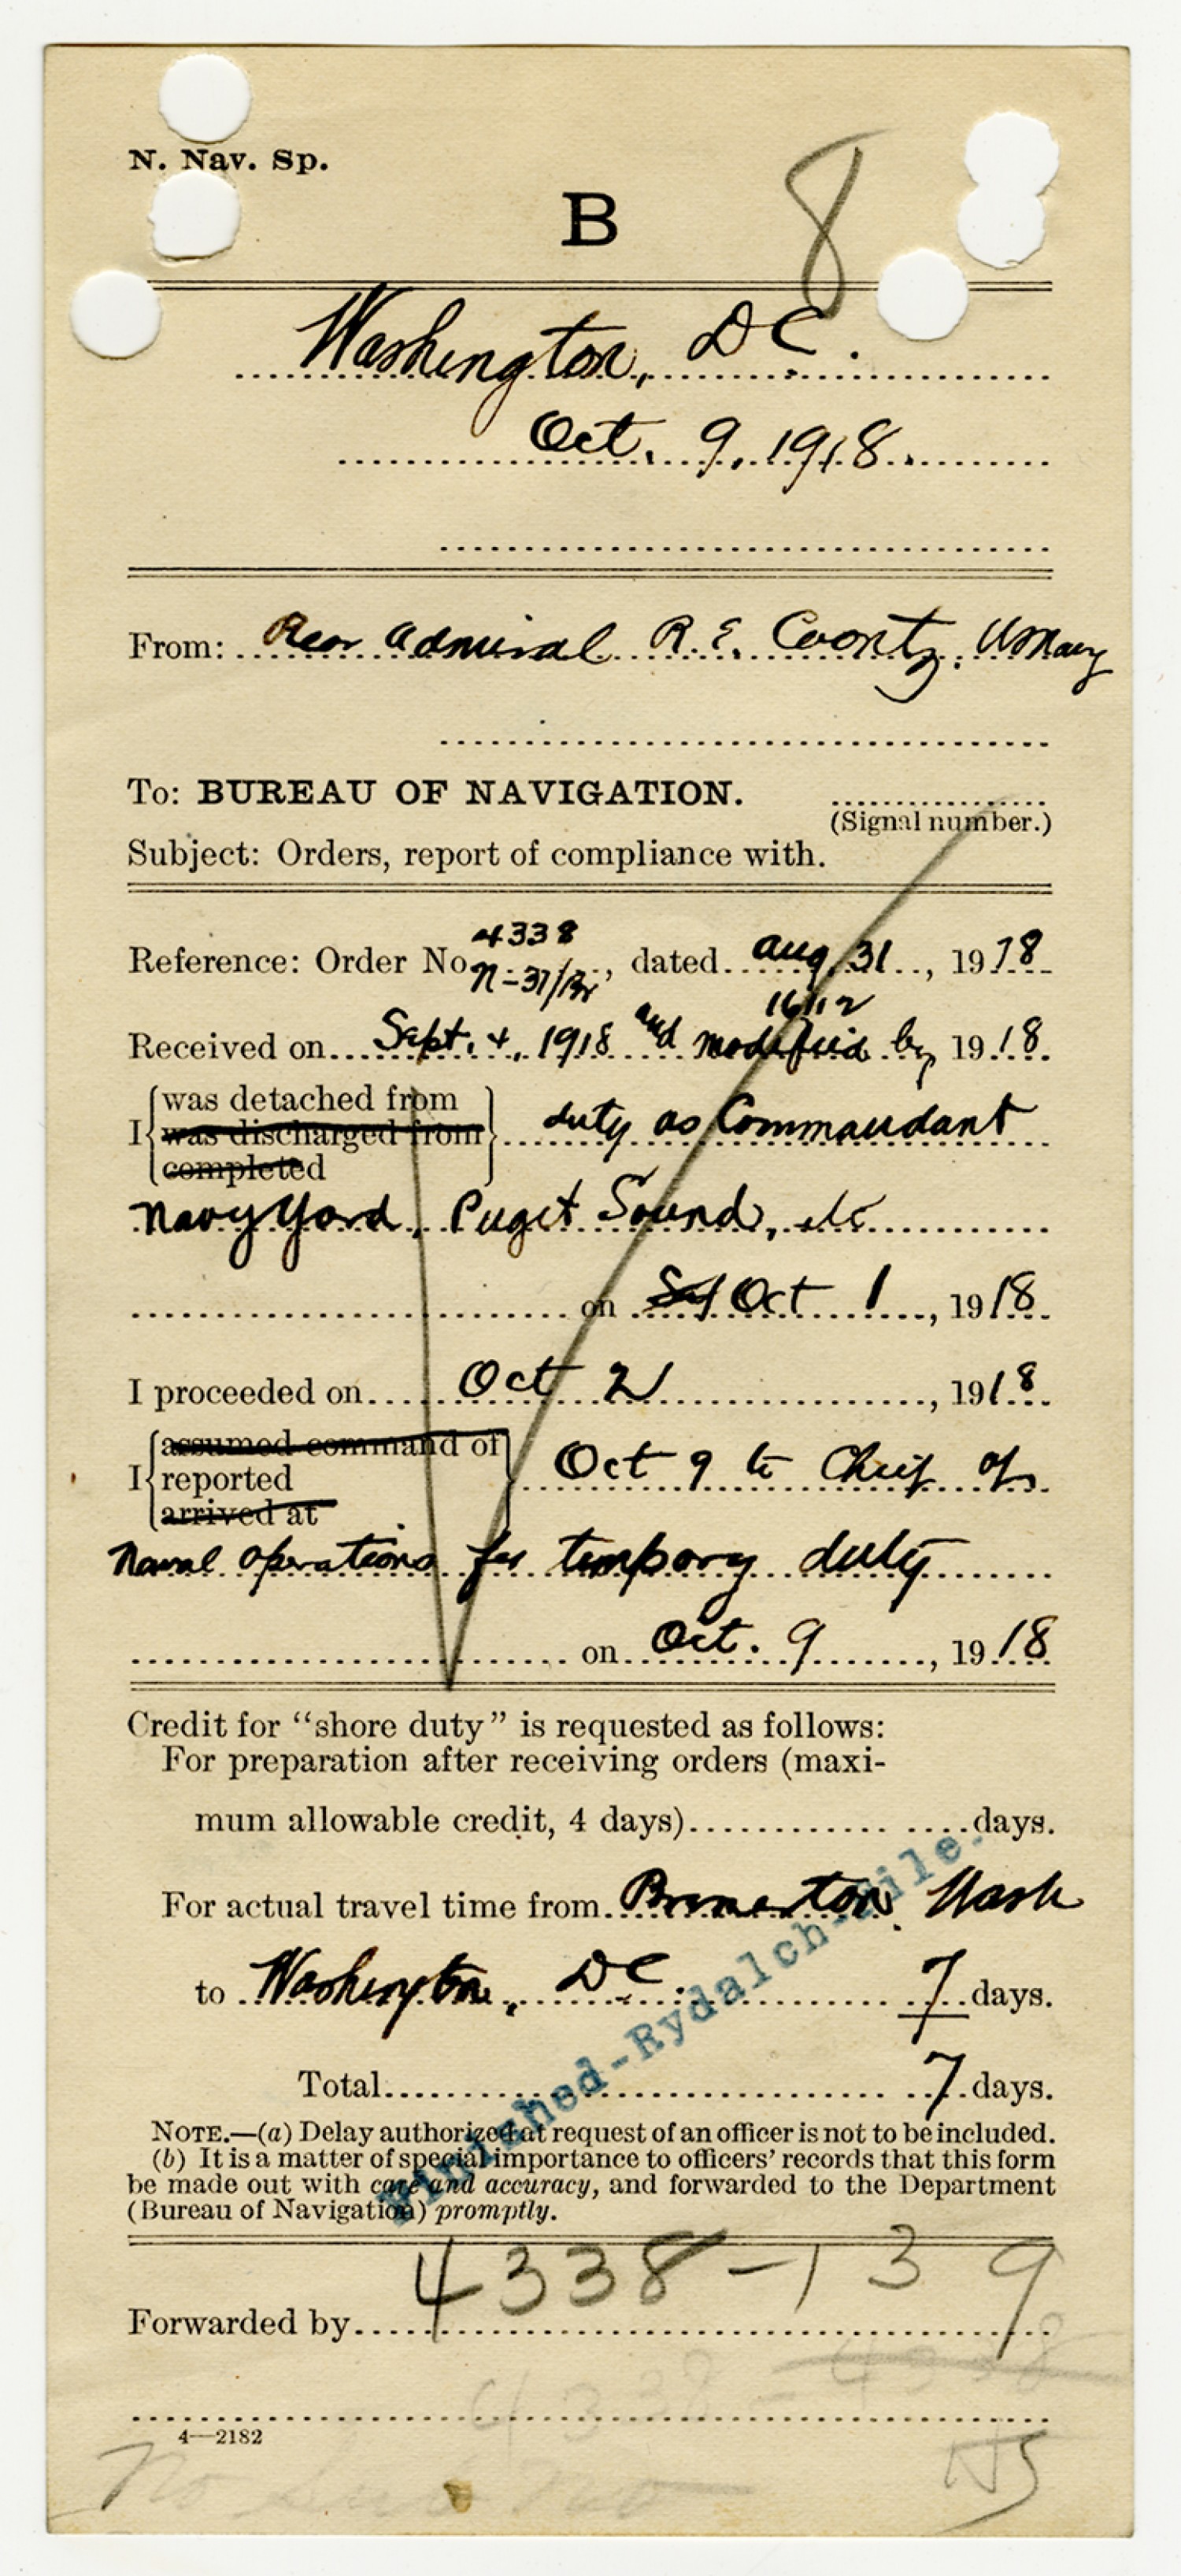 N. Nav. Sp.
B 8
Washington, DC.
Oct. 9, 1918.
From: Rear Admiral R. E. Coontz, USNavy
To: BUREAU OF NAVIGATION.
(Signal number.)
Subject: Orders, report of compliance with.
4338
Reference: Order No. N-31/Br, dated Aug 31, 1918
16112
Received on Sept. 4, 1918 and modified by 1918.
was detached from
I was discharged from duty as Commandant
completed
Navy Yard, Puget Sound, etc
on Oct 1, 1918.
I proceeded on Oct 2, 1918.
assumed command of
I reported Oct 9 to Chief of
arrived at
Naval Operations for tempory duty
on Oct. 9, 1918
Credit for “shore duty” is requested as follows:
For preparation after receiving orders (maxi-
mum allowable credit, 4 days) days.
For actual travel time from Bremerton, Wash
to Washington, DC. 7 days.
Total 7 days.
Finished-Rydalch-File.
NOTE.—(a) Delay authorized at request of an officer is not to be included.
(b) It is a matter of special importance to officers’ records that this form
be made out with care and accuracy, and forwarded to the Department
(Bureau of Navigation) promptly.
4338-139
Forwarded by
4338-4338
4—2182
No sub no